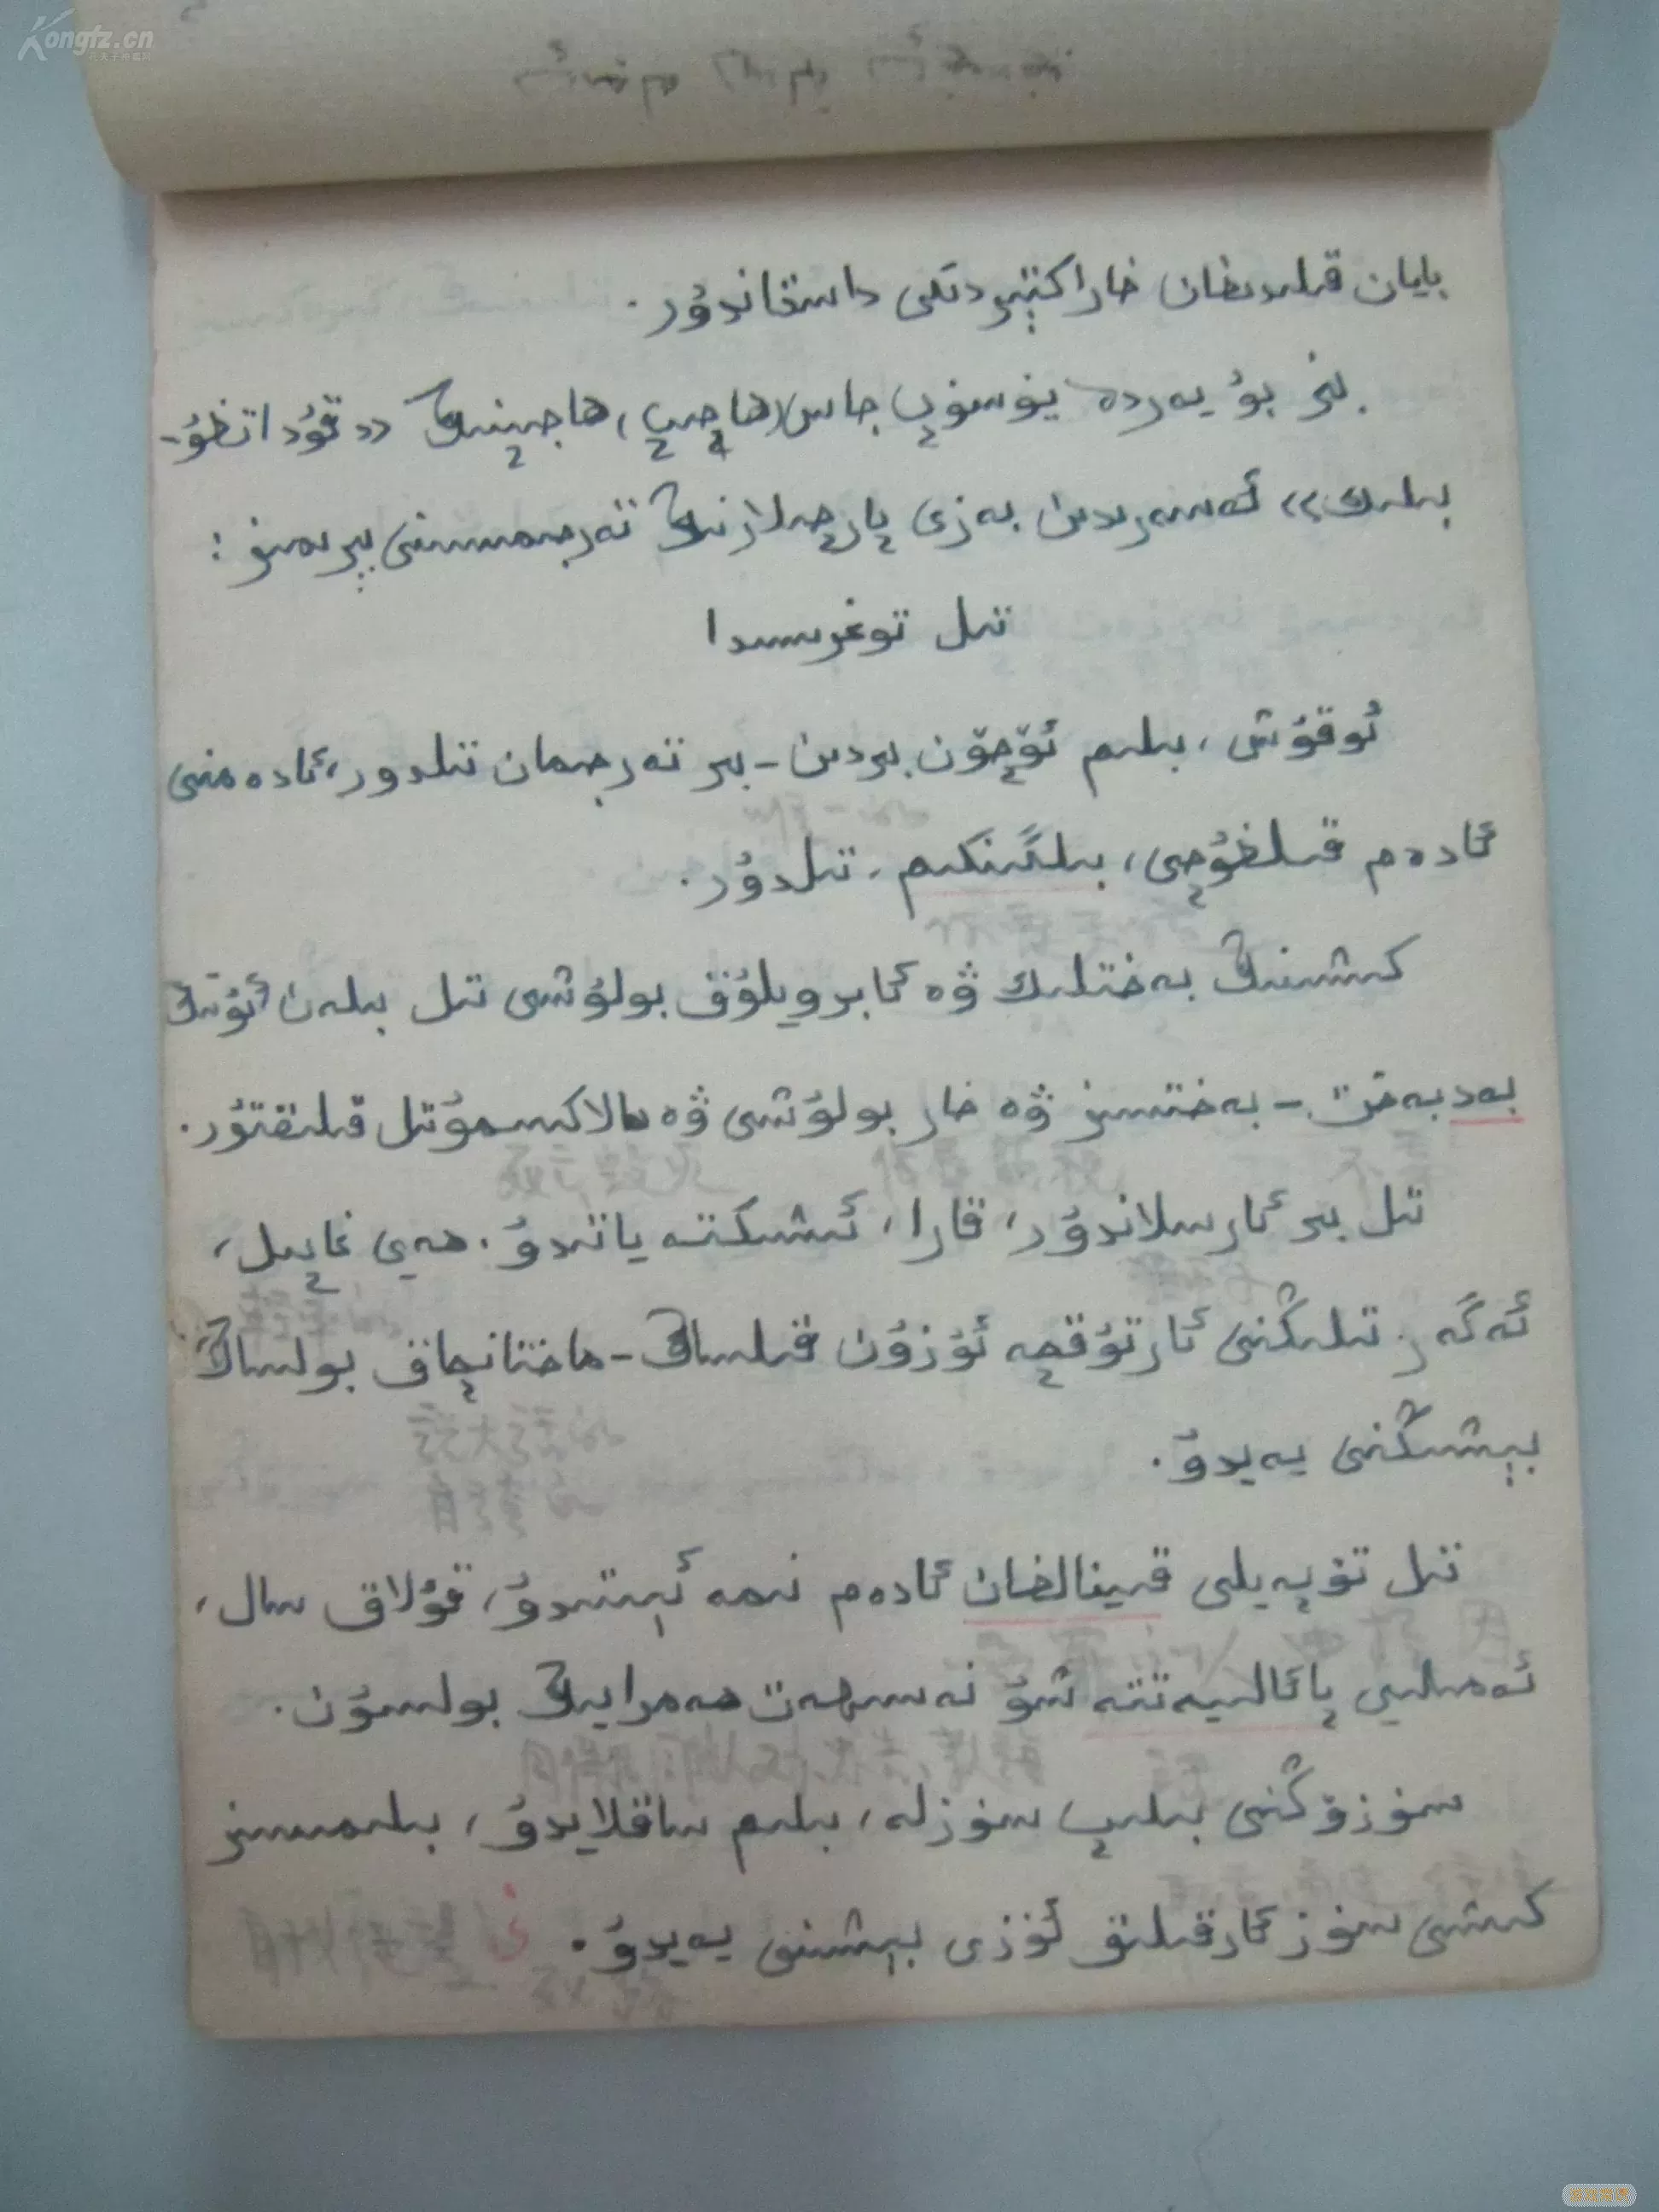 Kongfz.cn
بايان قىلىدىغان خاراكتېردىكى داستاندۇر.
بىز بۇ يەردە يۈسۈپ خاس (هاجىپ) هاجىپنىڭ «قۇداتغۇ-
بىلىك» ئەسەرىدىن بەزى پارچىلارنىڭ تەرجىمىسىنى بېرىمىز:
تىل توغرىسىدا
ئوقۇش، بىلىم ئۈچۈن بىردىن-بىر تەرجىمان تىلدور، ئادەمنى
ئادەم قىلغۇچى، بىلگىنكىم، تىلدۇر.
كىشىنىڭ بەختلىك ۋە ئابرويلۇق بولۇشى تىل بىلەن ئۇنىڭ
بەدبەخت-بەختسىز ۋە خار بولۇشى ۋە هالاكىمۇ تىل قىلىقتۇر.
تىل بىر ئارسلاندۇر، قارا، ئىشىكتە ياتىدۇ. هەي غاپىل،
ئەگەر تىلىڭنى ئارتۇقچە ئۇزۇن قىلساڭ-ماختانچاق بولساڭ
بېشىڭنى يەيدۇ.
تىل تۈپەيلى قىينالغان ئادەم نىمە ئېيتىدۇ، قۇلاق سال،
ئەمىلىي پائالىيەتتە شۇ نەسىهەت هەمرايىڭ بولسۇن.
سۆزۈڭنى بىلىپ سۆزلە، بىلىم ساقلايدۇ، بىلىمسىز
كىشى سۆز ئارقىلىق ئۆزى بېشىنى يەيدۇ.